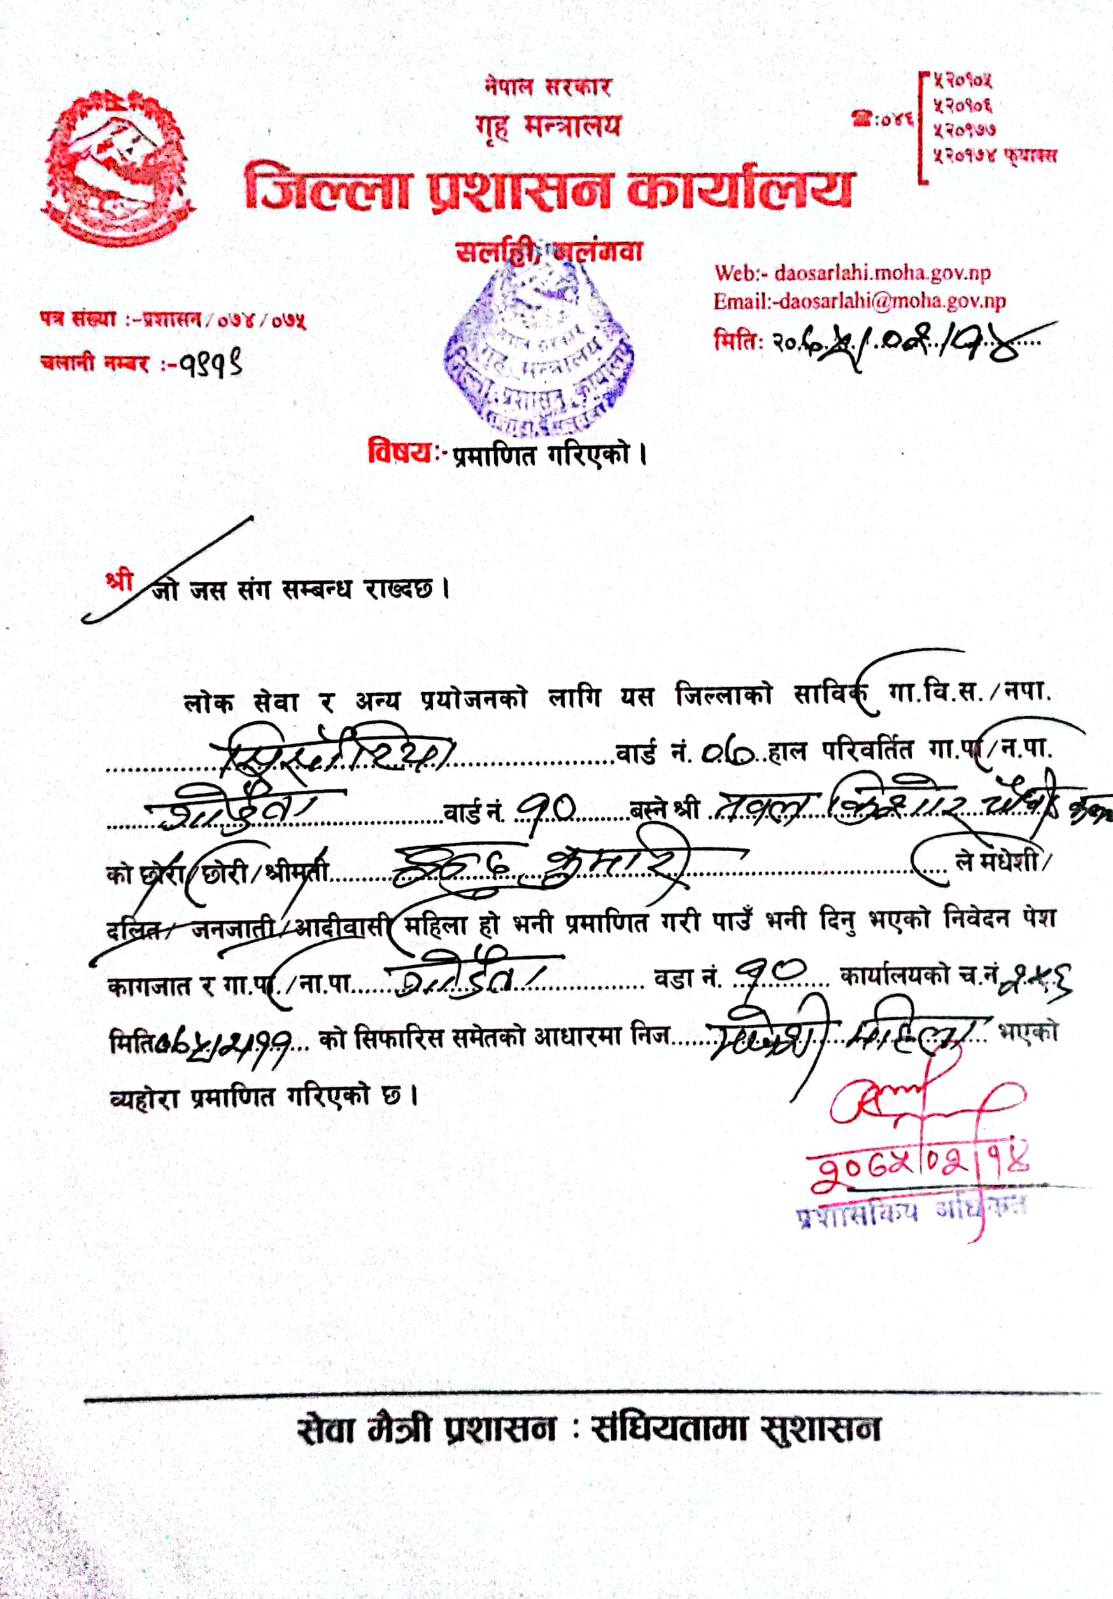 नेपाल सरकार
गृह मन्त्रालय
जिल्ला प्रशासन कार्यालय
सर्लाही, मलंगवा
☎:०४६
५२०१०५
५२०१०६
५२०१७७
५२०१७४ फ्याक्स
Web:- daosarlahi.moha.gov.np
Email:-daosarlahi@moha.gov.np
पत्र संख्या :-प्रशासन/०७४/०७५
मितिः २०७५/०२/१४
चलानी नम्बर :-१९१९
नेपाल सरकार
गृह मन्त्रालय
जिल्ला प्रशासन कार्यालय
विषयः- प्रमाणित गरिएको ।
श्री जो जस संग सम्बन्ध राख्दछ ।
लोक सेवा र अन्य प्रयोजनको लागि यस जिल्लाको साविक गा.वि.स./नपा.
वार्ड नं. ०७ हाल परिवर्तित गा.पा/न.पा.
गोडैता वार्ड नं. १० बस्ने श्री नवल किशोर चौधरी
को छोरा/छोरी/श्रीमती कुमारी ले मधेशी/
दलित/जनजाती/आदीवासी महिला हो भनी प्रमाणित गरी पाउँ भनी दिनु भएको निवेदन पेश
कागजात र गा.पा./ना.पा. गोडैता वडा नं. १० कार्यालयको च.नं २५६
मिति ०७५/२/११ को सिफारिस समेतको आधारमा निज मधेशी महिला भएको
व्यहोरा प्रमाणित गरिएको छ ।
२०७५/०२/१४
प्रशासकिय अधिकृत
सेवा मैत्री प्रशासन : संघियतामा सुशासन